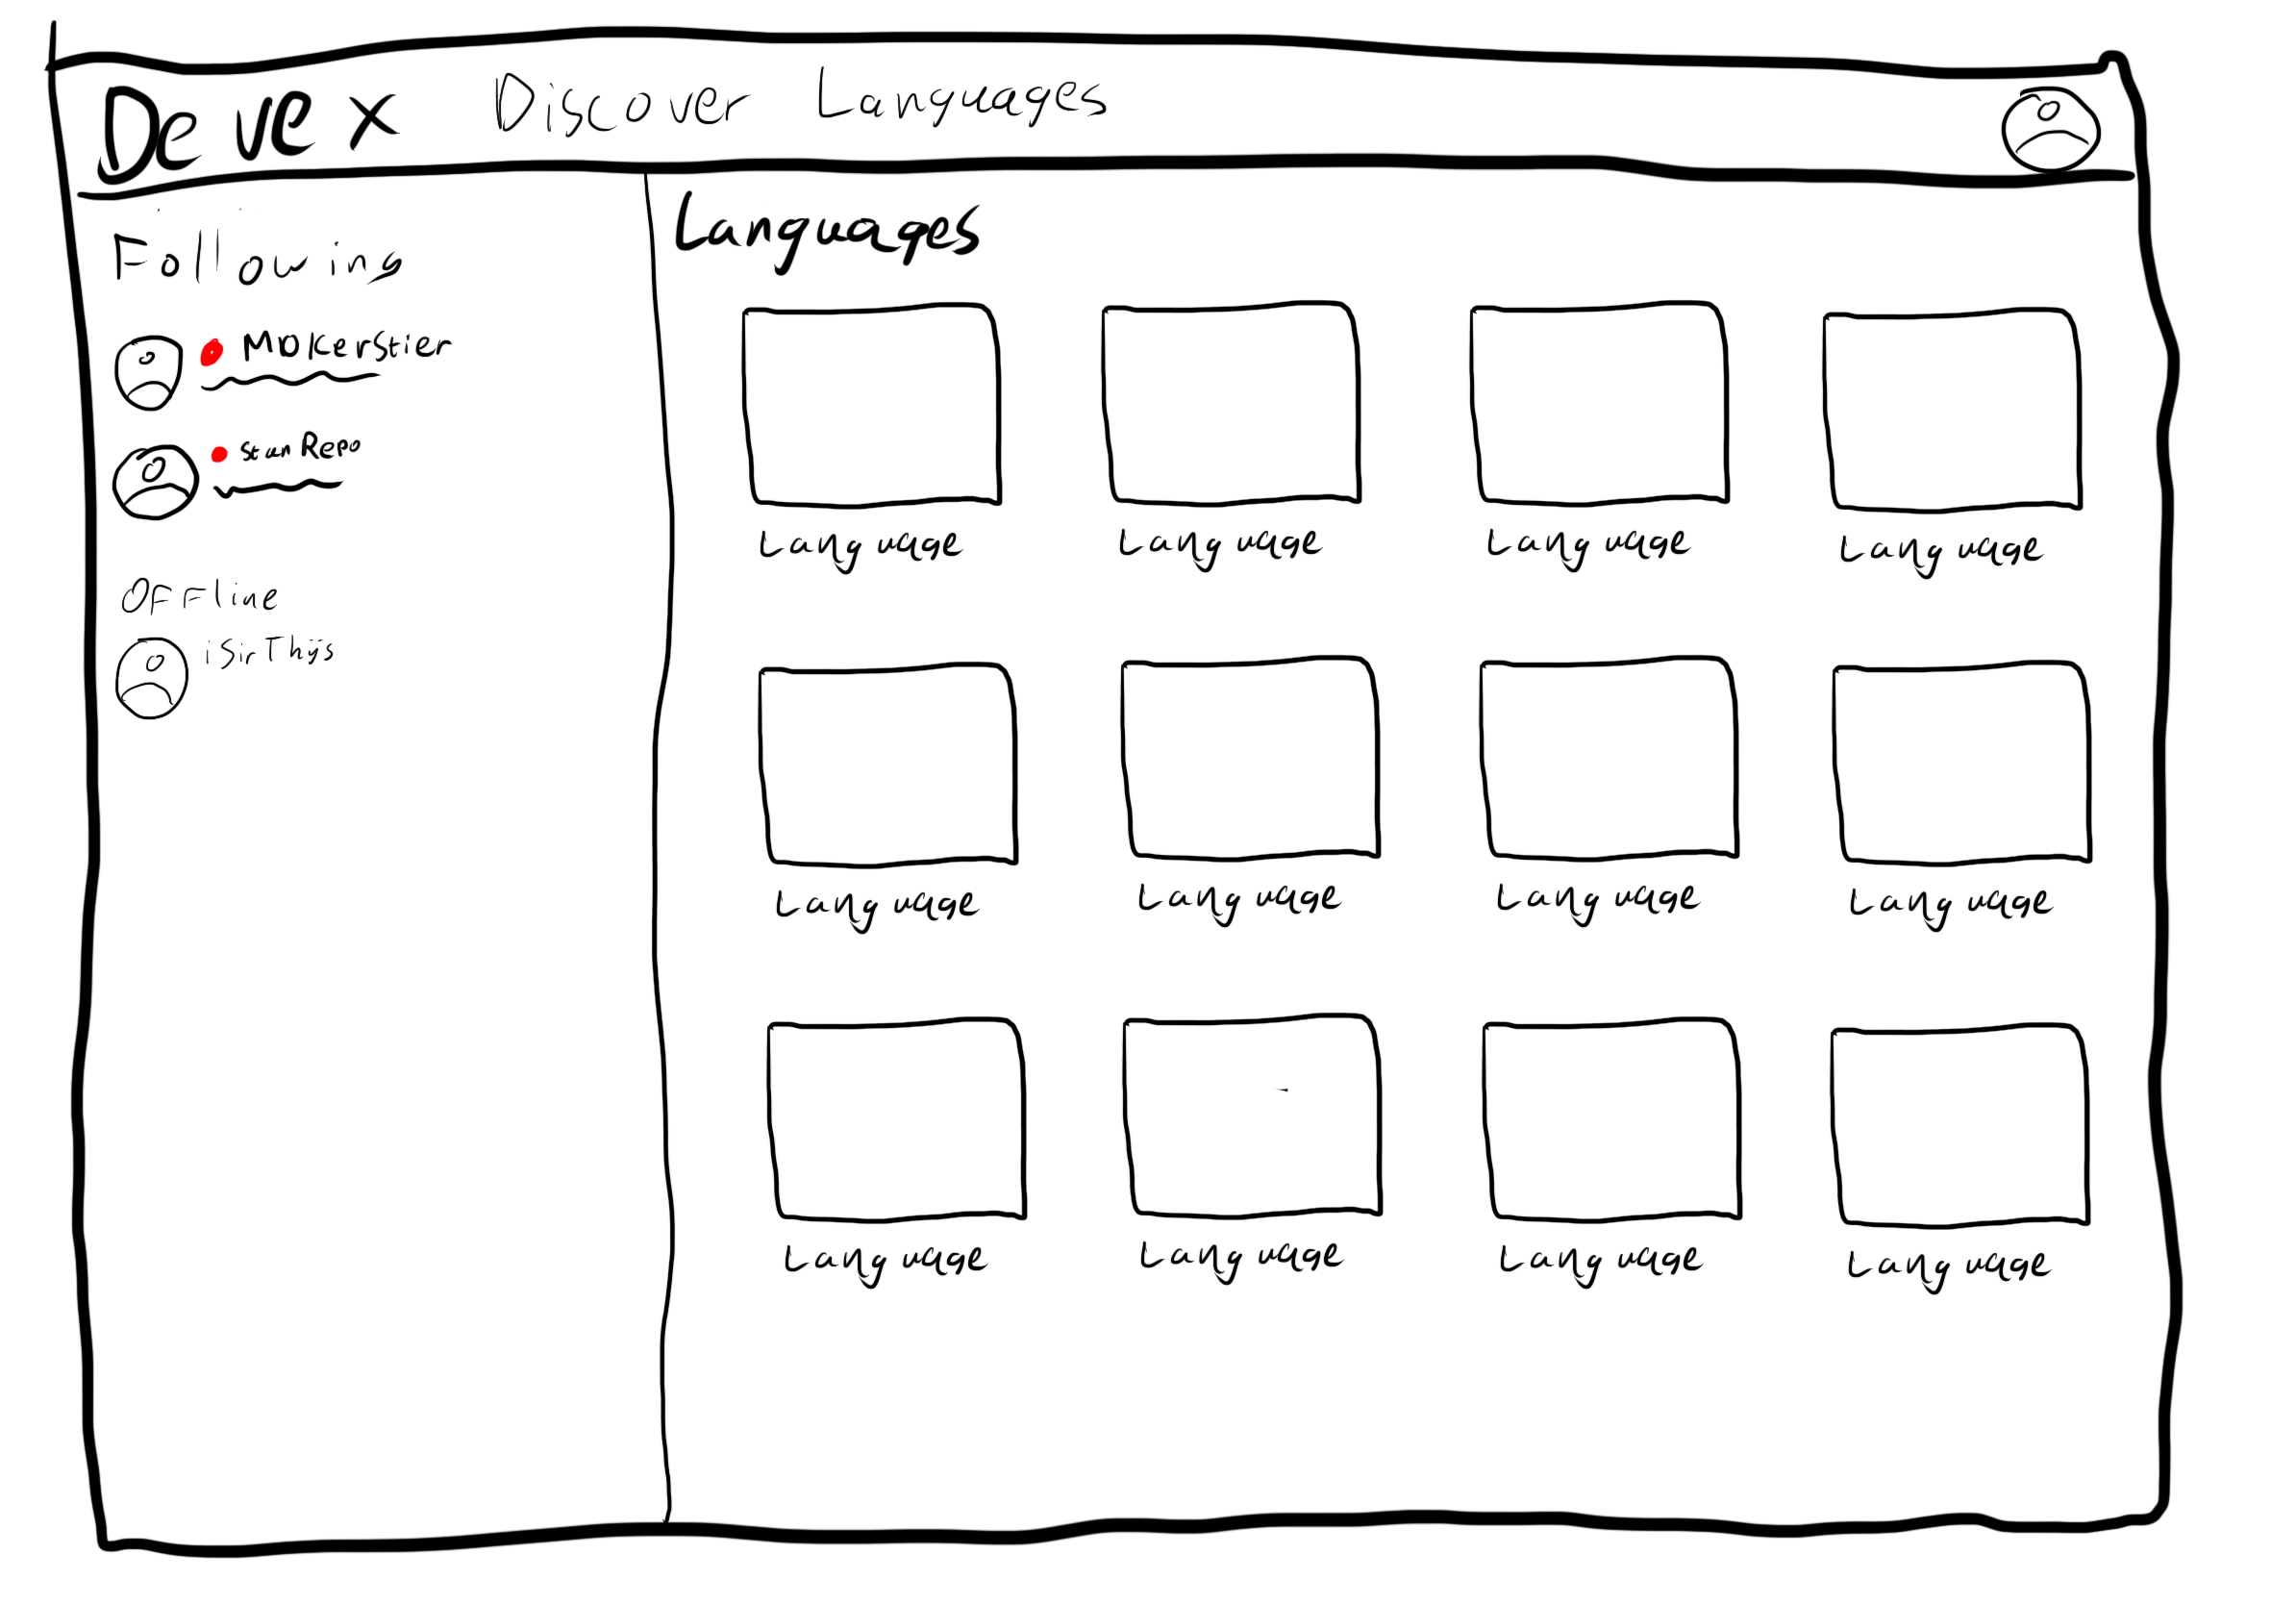 Devex Discover Languages
Following
Mokerstier
StanRepo
Offline
iSirThijs
Languages
Language Language Language Language
Language Language Language Language
Language Language Language Language